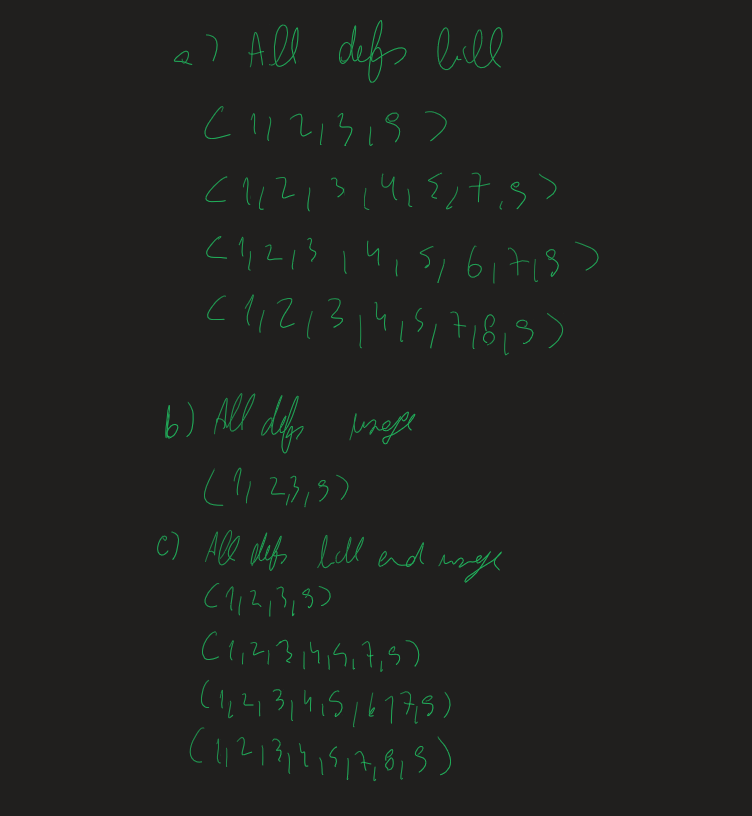 a) All defs kill
(1,2,3,9)
(1,2,3,4,5,7,9)
(1,2,3,4,5,6,7,9)
(1,2,3,4,5,7,8,9)
b) All defs usage
(1,2,3,9)
c) All defs kill and usage
(1,2,3,9)
(1,2,3,4,5,7,9)
(1,2,3,4,5,6,7,9)
(1,2,3,4,5,7,8,9)